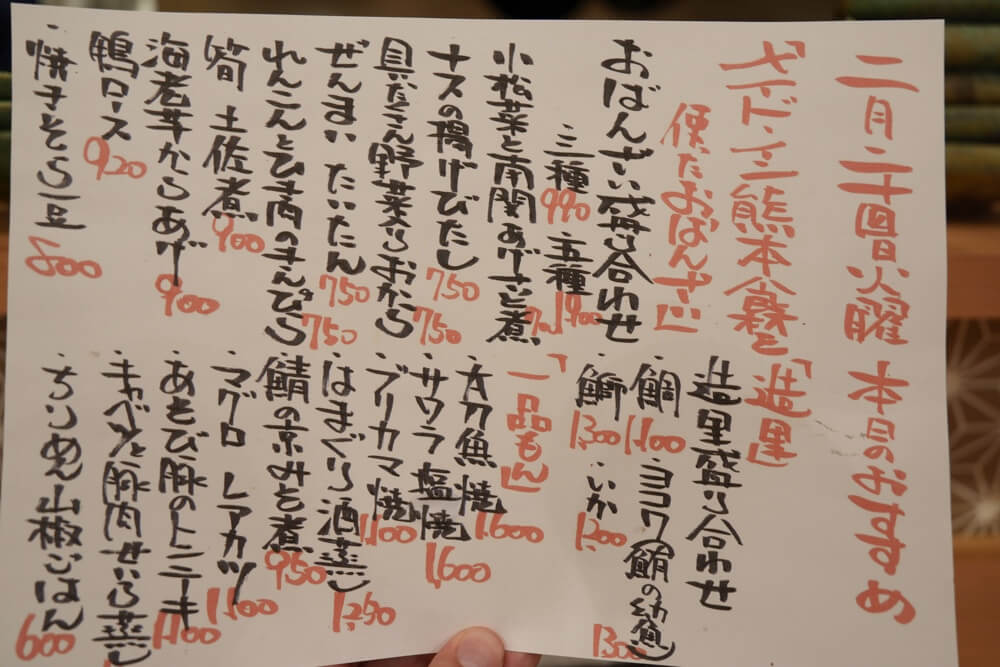 二月二十四日火曜 本日のおすすめ
「メイドイン熊本食器を
使ったおばんざい」
おばんざい盛り合わせ
・三種 990 ・五種 1,900
小松菜と南関あげさっと煮 7
ナスの揚げびたし 750
具だくさん野菜うおから 750
ぜんまい たいたん 750
れんこんとひき肉のきんぴら 750
筍 土佐煮 900
海老芋からあげ 900
鴨ロース 920
・焼きそら豆 800
「造里」
造里盛り合わせ
・鯛 1,100 ・ヨコワ(鮪の幼魚) 1300
・鰤 1,300 ・いか 1,200
「一品もん」
・太刀魚焼 1,600
・サワラ塩焼 1,600
・ブリカマ焼 1,100
・はまぐり酒蒸し 1,250
・鯖の京みそ煮 950
・マグロ レアカツ 1,100
・あそび豚のトンテキ 1,100
・キャベツと豚肉せいろ蒸し
・ちりめん山椒ごはん 600